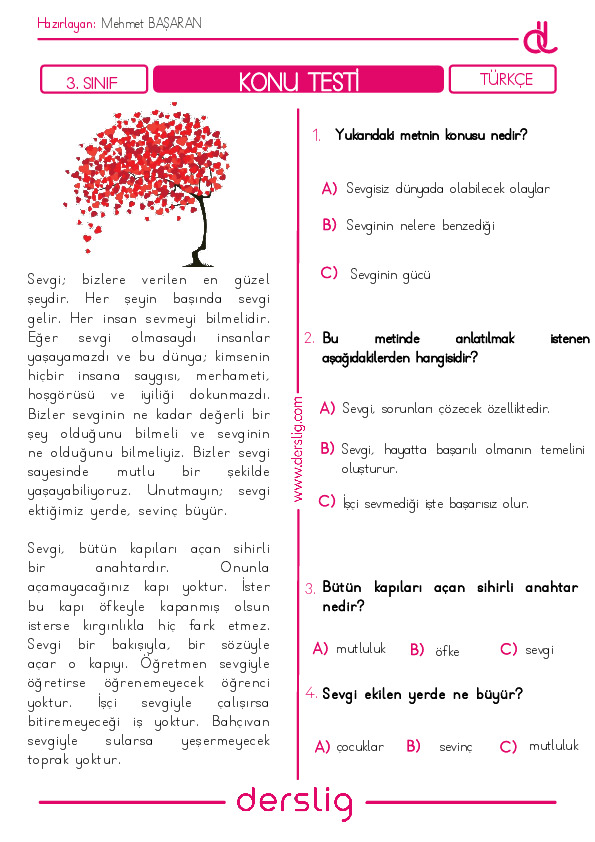 Hazırlayan: Mehmet BAŞARAN
3. SINIF
KONU TESTİ
TÜRKÇE
Sevgi; bizlere verilen en güzel
şeydir. Her şeyin başında sevgi
gelir. Her insan sevmeyi bilmelidir.
Eğer sevgi olmasaydı insanlar
yaşayamazdı ve bu dünya; kimsenin
hiçbir insana saygısı, merhameti,
hoşgörüsü ve iyiliği dokunmazdı.
Bizler sevginin ne kadar değerli bir
şey olduğunu bilmeli ve sevginin
ne olduğunu bilmeliyiz. Bizler sevgi
sayesinde mutlu bir şekilde
yaşayabiliyoruz. Unutmayın; sevgi
ektiğimiz yerde, sevinç büyür.
Sevgi, bütün kapıları açan sihirli
bir anahtardır. Onunla
açamayacağınız kapı yoktur. İster
bu kapı öfkeyle kapanmış olsun
isterse kırgınlıkla hiç fark etmez.
Sevgi bir bakışıyla, bir sözüyle
açar o kapıyı. Öğretmen sevgiyle
öğretirse öğrenemeyecek öğrenci
yoktur. İşçi sevgiyle çalışırsa
bitiremeyeceği iş yoktur. Bahçıvan
sevgiyle sularsa yeşermeyecek
toprak yoktur.
www.derslig.com
1. Yukarıdaki metnin konusu nedir?
A) Sevgisiz dünyada olabilecek olaylar
B) Sevginin nelere benzediği
C) Sevginin gücü
2. Bu metinde anlatılmak istenen
aşağıdakilerden hangisidir?
A) Sevgi, sorunları çözecek özelliktedir.
B) Sevgi, hayatta başarılı olmanın temelini
oluşturur.
C) İşçi sevmediği işte başarısız olur.
3. Bütün kapıları açan sihirli anahtar
nedir?
A) mutluluk B) öfke C) sevgi
4. Sevgi ekilen yerde ne büyür?
A) çocuklar B) sevinç C) mutluluk
derslig